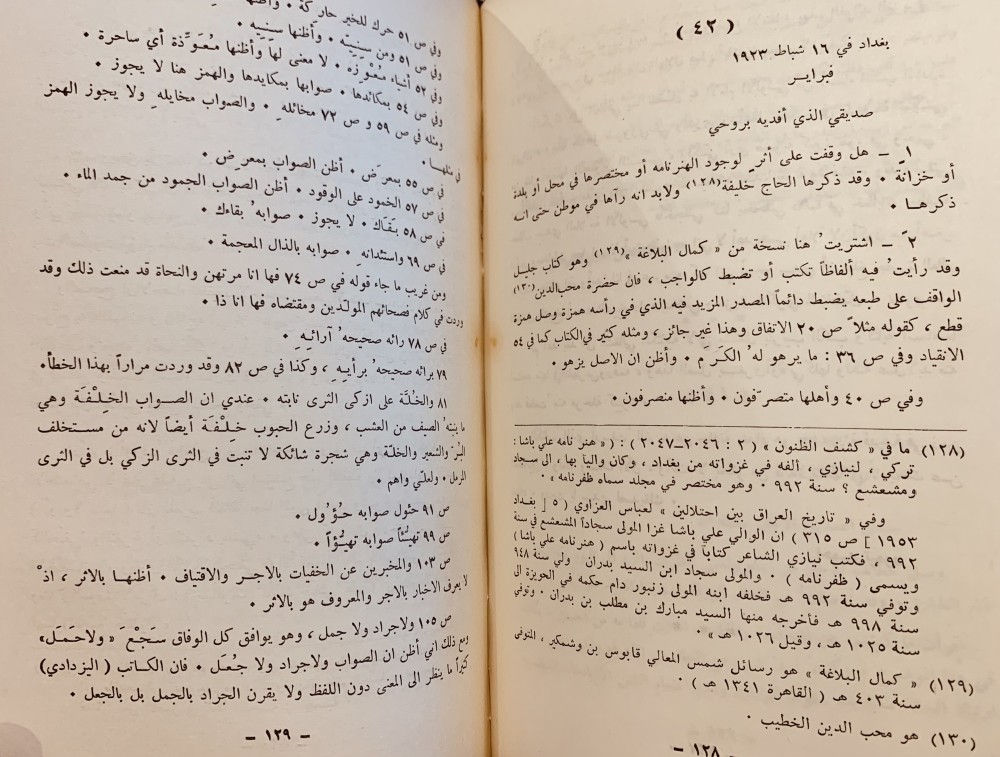 ( ٤٢ )
بغداد في ١٦ شباط ١٩٢٣
فبراير
صديقي الذي أفديه بروحي
١ً – هل وقفت على أثرٍ لوجود الهنرنامه أو مختصرها في محل أو بلدة
أو خزانة ٠ وقد ذكرها الحاج خليفة(١٢٨) ولابد انه رآها في موطن حتى انه
ذكرها ٠
٢ً – اشتريت' هنا نسخة من « كمال البلاغة »(١٢٩) وهو كتاب جليل
وقد رأيت' فيه ألفاظاً تكتب أو تضبط كالواجب ، فان حضرة محب‌الدين(١٣٠)
الواقف على طبعه يضبط دائماً المصدر المزيد فيه الذي في رأسه همزة وصل همزة
قطع ، كقوله مثلاً ص ٢٠ الاتفاق وهذا غير جائز ، ومثله كثير في الكتاب كما في ٥٤
الانقياد وفي ص ٣٦ : ما يرهو له' الكَرَم ٠ وأظن ان الاصل يزهو ٠
وفي ص ٤٠ وأهلها متصرّفون ٠ وأظنها منصرفون ٠
(١٢٨) ما في « كشف الظنون » ( ٢ : ٢٠٤٦–٢٠٤٧ ) : ( « هنر نامه علي باشا :
تركي ، لنيازي ، ألفه في غزواته من بغداد ، وكان واليا بها ، الى سجاد
ومشعشع ؟ سنة ٩٩٢ ٠ وهو مختصر في مجلد سماه ظفرنامه » ٠
وفي « تاريخ العراق بين احتلالين » لعباس العزاوي ( ٥ [ بغداد
١٩٥٣ ] ص ٣١٥ ) ان الوالي علي باشا غزا المولى سجاداً المشعشع في سنة
٩٩٢ ، فكتب نيازي الشاعر كتابا في غزواته باسم ( هنرنامه علي باشا )
ويسمى ( ظفرنامه ) ٠ والمولى سجاد ابن السيد بدران ولي سنة ٩٤٨
وتوفي سنة ٩٩٢ هـ فخلفه ابنه المولى زنبور دام حكمه في الحويزة الى
سنة ٩٩٨ هـ فأخرجه منها السيد مبارك بن مطلب بن بدران ٠ وتوفي
سنة ١٠٢٥ هـ ، وقيل ١٠٢٦ هـ » ٠
(١٢٩) « كمال البلاغة » هو رسائل شمس المعالي قابوس بن وشمكير ، المتوفى
سنة ٤٠٣ هـ ( القاهرة ١٣٤١ هـ ) ٠
(١٣٠) هو محب الدين الخطيب ٠
– ١٢٨ –
وفي ص ٥١ حرك للخبر حاركة ٠ وأظنها
وفي ص ٥١ ومن سيبته ٠ وأظنها سيبه ٠
وفي ٥٢ أشياء معوزه ٠ لا معنى لها وأظنها مُعَوِّذة أي ساحرة ٠
وفي ص ٥٤ بمكائدها ٠ صوابها بمكايدها والهمز هنا لا يجوز ٠
ومثله في ص ٥٩ و ص ٧٢ مخائله ٠ والصواب مخايله ولا يجوز الهمز
في مثلها ٠
في ص ٥٥ بمعرَض ٠ أظن الصواب بمعرِض ٠
في ص ٥٧ الخمود على الوقود ٠ أظن الصواب الجمود من جمد الماء ٠
في ص ٥٨ بَقَاك ٠ لا يجوز ٠ صوابه' بقاءك ٠
في ص ٦٩ واستئدانه ٠ صوابه بالذال المعجمة ٠
ومن غريب ما جاء قوله في ص ٧٤ فها انا مرتهن والنحاة قد منعت ذلك وقد
وردت في كلام فصحائهم المولّدين ومقتضاه فها انا ذا ٠
في ص ٧٨ رائه صحيحه' آرائِهِ ٠
٧٩ برائه صحيحه' برأيِهِ ، وكذا في ص ٨٢ وقد وردت مراراً بهذا الخطأ٠
٨١ والخُلَّة على ازكى الثرى نابته ٠ عندي ان الصواب الخِلْفَة وهي
ما ينبته' الصيف من العشب ، وزرع الحبوب خِلْفَة أيضاً لانه من مستخلف
البُرّ والشعير والخلّة وهي شجرة شائكة لا تنبت في الثرى الزكي بل في الثرى
المرمل ٠ ولعلّي واهم ٠
ص ٩١ حئول صوابه حُؤُول ٠
ص ٩٩ تهيُّئاً صوابه تهيُّؤاً ٠
ص ١٠٣ والمخبرين عن الخفيات بالاجر والاقتياف ٠ أظنها بالاثر ، اذْ
لا يعرف الاخبار بالاجر والمعروف هو بالاثر ٠
ص ١٠٥ ولاجراد ولا جمل ، وهو يوافق كل الوفاق سَجْعَ « ولاحَمَل»
ومع ذلك اني أظن ان الصواب ولاجراد ولا جُعَل ٠ فان الكاتب ( اليزدادي)
كثيراً ما ينظر الى المعنى دون اللفظ ولا يقرن الجراد بالجمل بل بالجعل ٠
– ١٢٩ –